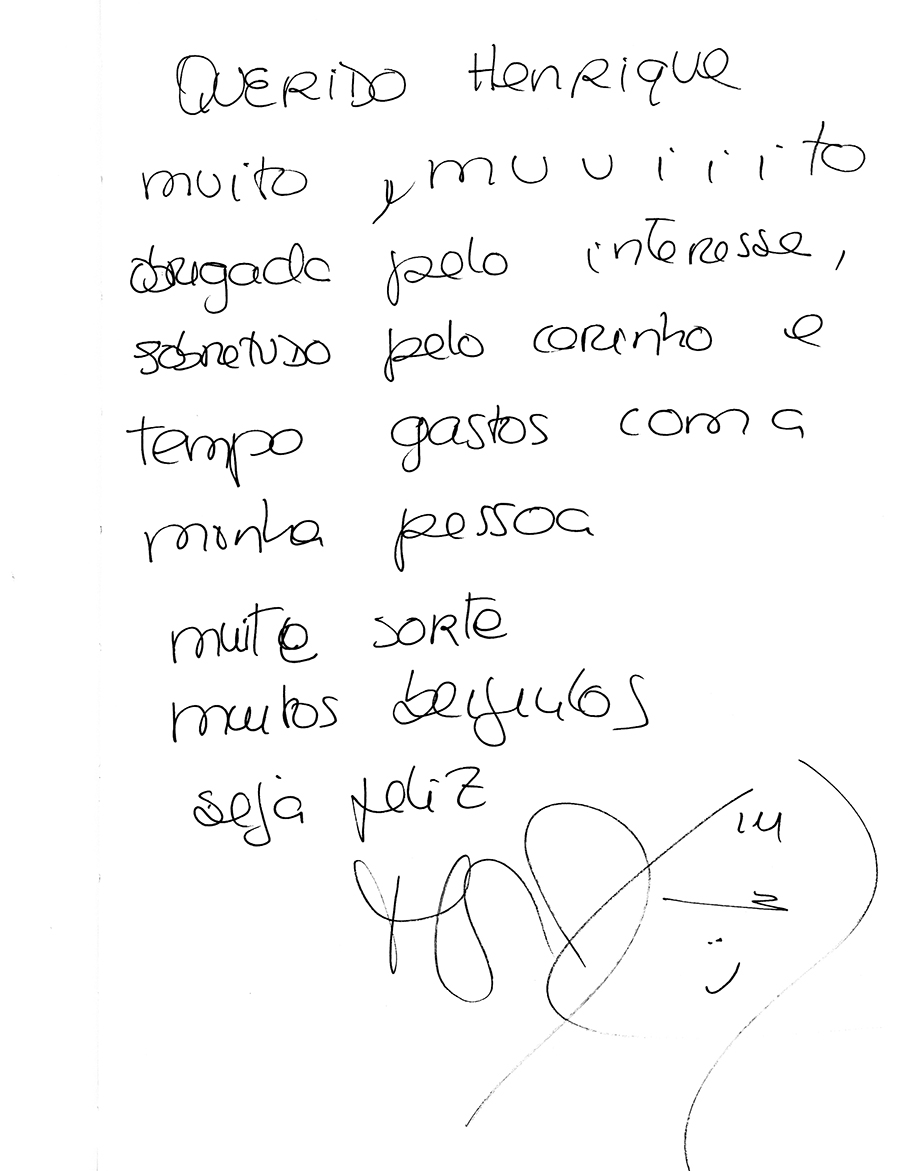 QUERIDO Henrique
muito, muuiiito
obrigada pelo interesse,
sobretudo pelo carinho e
tempo gastos com a
minha pessoa
muite sorte
muitos beijinhos
seja feliz
:)